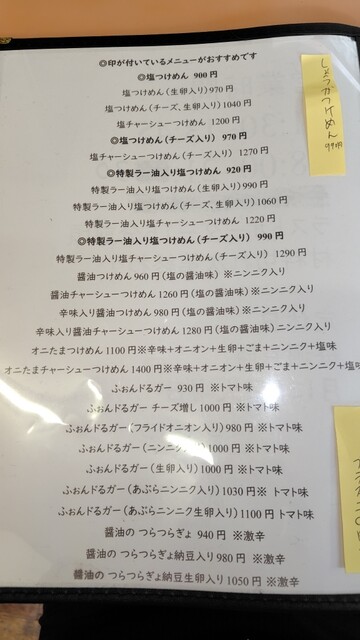 ◎印が付いているメニューがおすすめです
◎塩つけめん 900円
塩つけめん(生卵入り)970円
塩つけめん(チーズ、生卵入り)1040円
塩チャーシューつけめん 1200円
◎塩つけめん(チーズ入り) 970円
塩チャーシューつけめん(チーズ入り) 1270円
◎特製ラー油入り塩つけめん 920円
特製ラー油入り塩つけめん(生卵入り)990円
特製ラー油入り塩つけめん(チーズ、生卵入り)1060円
特製ラー油入り塩チャーシューつけめん 1220円
◎特製ラー油入り塩つけめん(チーズ入り) 990円
特製ラー油入り塩チャーシューつけめん(チーズ入り) 1290円
醤油つけめん960円(塩の醤油味)※ニンニク入り
醤油チャーシューつけめん1260円(塩の醤油味)※ニンニク入り
辛味入り醤油つけめん980円(塩の醤油味)※ニンニク入り
辛味入り醤油チャーシューつけめん1280円(塩の醤油味)ニンニク入り
オニたまつけめん1100円※辛味+オニオン+生卵+ごま+ニンニク+塩味
オニたまチャーシューつけめん1400円※辛味+オニオン+生卵+ごま+ニンニク+塩味
ふぉんどるガー 930円 ※トマト味
ふぉんどるガー チーズ増し1000円 ※トマト味
ふぉんどるガー(フライドオニオン入り)980円 ※トマト味
ふぉんどるガー(ニンニク入り)1000円 ※トマト味
ふぉんどるガー(生卵入り)1000円 ※トマト味
ふぉんどるガー(あぶらニンニク入り)1030円※ トマト味
ふぉんどるガー(あぶらニンニク生卵入り)1100円 トマト味
醤油の つらつらぎょ 940円 ※激辛
醤油の つらつらぎょ納豆入り980円 ※激辛
醤油の つらつらぎょ納豆生卵入り1050円 ※激辛
しょうがつけめん
990円